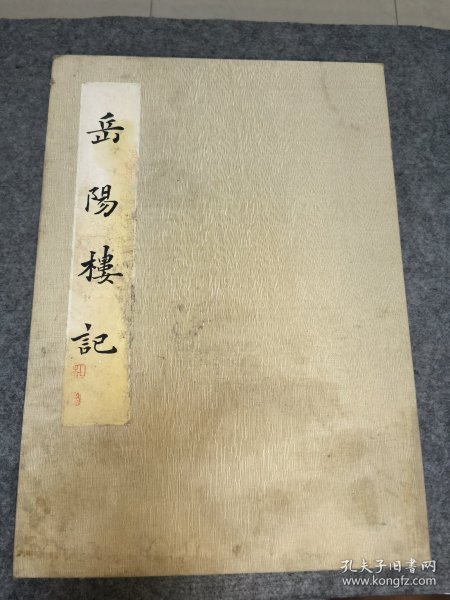 岳陽樓記
孔夫子旧书网
www.kongfz.com